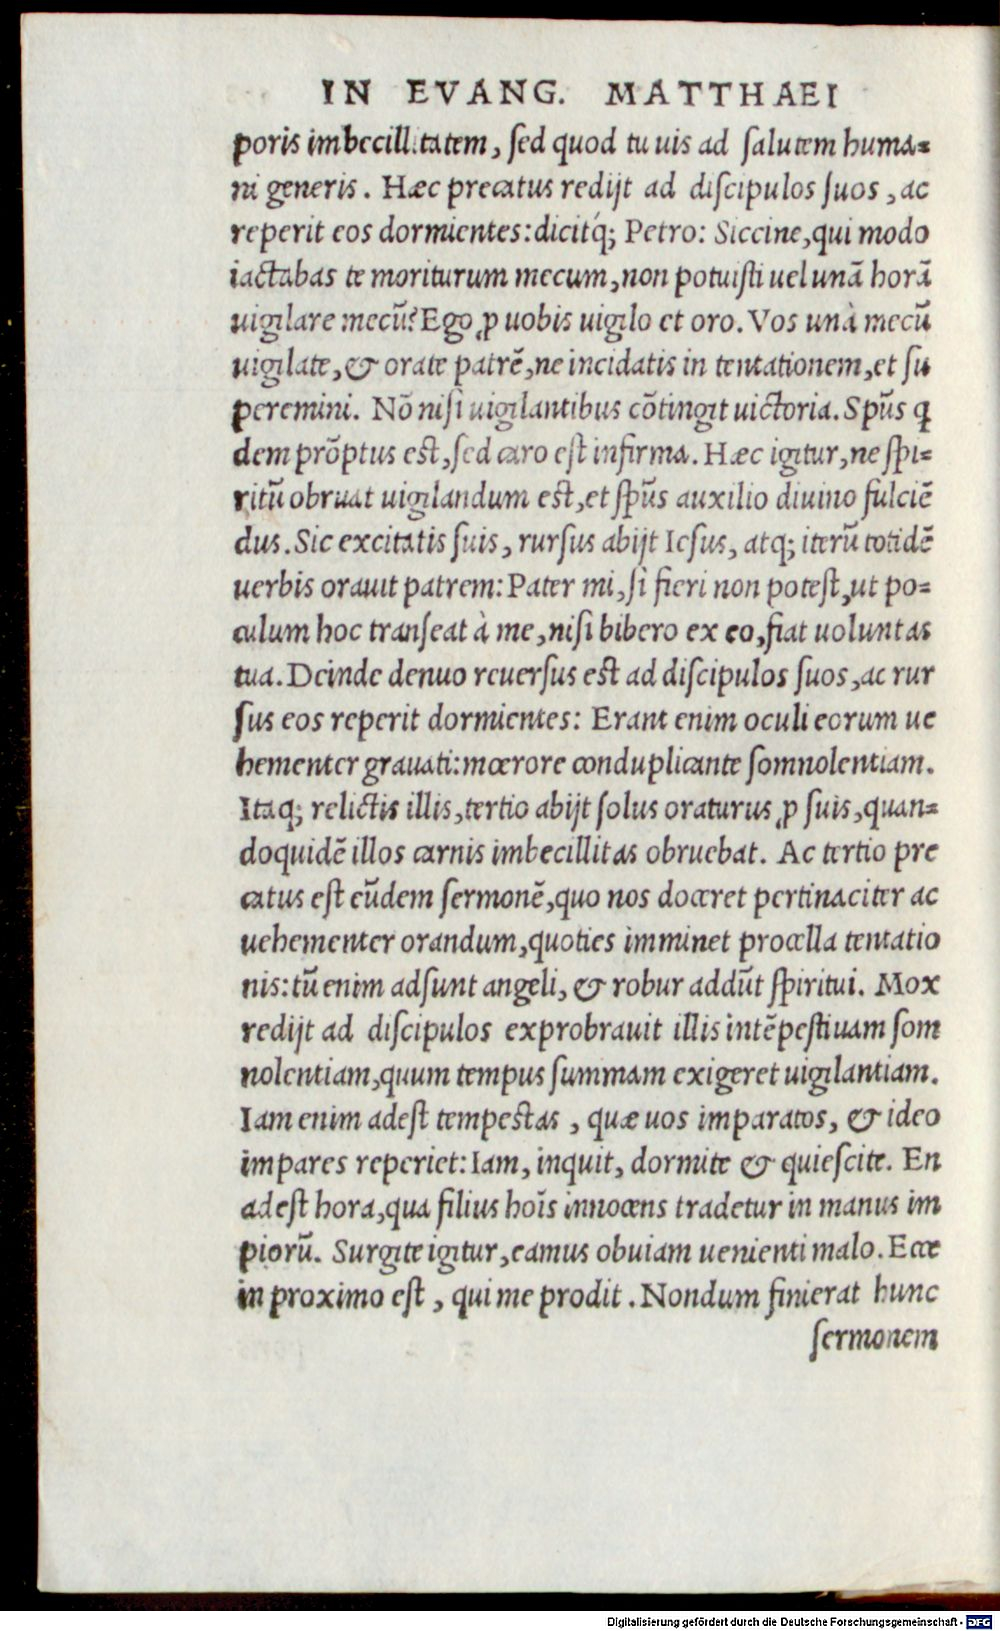 IN EVANG. MATTHAEI
poris imbecill.tatem, sed quod tu uis ad salutem huma=
ni generis. Hæc precatus redijt ad discipulos suos, ac
reperit eos dormientes: dicitq́; Petro: Siccine, qui modo
iactabas te moriturum mecum, non potuisti uel unā horā
uigilare mecū? Ego ꝓ uobis uigilo et oro. Vos unà mecū
uigilate, & orate patrē, ne incidatis in tentationem, et su
peremini. Nō nisi uigilantibus cōtingit uictoria. Spūs q
dem prōptus est, sed caro est infirma. Hæc igitur, ne spi=
ritū obruat uigilandum est, et spūs auxilio diuino fulciē
dus. Sic excitatis suis, rursus abijt Iesus, atq; iterū totidē
uerbis orauit patrem: Pater mi, si fieri non potest, ut po=
culum hoc transeat à me, nisi bibero ex eo, fiat uoluntas
tua. Deinde denuo reuersus est ad discipulos suos, ac rur
sus eos reperit dormientes: Erant enim oculi eorum ue
hementer grauati: mœrore conduplicante somnolentiam.
Itaq; relictis illis, tertio abijt solus oraturus ꝓ suis, quan=
doquidē illos carnis imbecillitas obruebat. Ac tertio pre
catus est eūdem sermonē, quo nos doceret pertinaciter ac
uehementer orandum, quoties imminet procella tentatio
nis: tū enim adsunt angeli, & robur addūt spiritui. Mox
redijt ad discipulos exprobrauit illis intēpestiuam som
nolentiam, quum tempus summam exigeret uigilantiam.
Iam enim adest tempestas, quæ uos imparatos, & ideo
impares reperiet: Iam, inquit, dormite & quiescite. En
adest hora, qua filius hoīs innocens tradetur in manus im
piorū. Surgite igitur, eamus obuiam uenienti malo. Ecce
in proximo est, qui me prodit. Nondum finierat hunc
sermonem
Digitalisierung gefördert durch die Deutsche Forschungsgemeinschaft - DFG